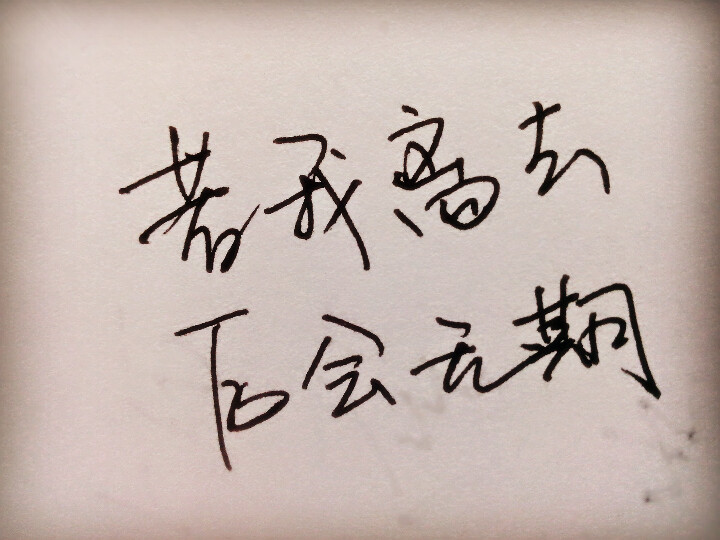 若我离去
后会无期